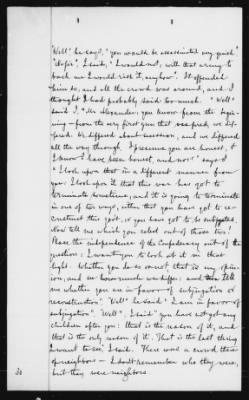 "Well" he says, "you would be assassinated very quick"
"No sir", I said, "I would not, with that army to
back me I would risk it, anyhow". It offended
him so, and all the crowd was around, and I
thought I had probably said too much. "Well"
said I, "Mr Alexander, you know from the begin-
ning - from the very first gun that was fired, we dif-
fered. We differed about secession, and we differed
all the way through. I presume you are honest, &
I know I have been honest, and now" says I
"I look upon that in a different manner from
you: I look upon it that this war has got to
terminate sometime; and it is going to terminate
in one of two ways, either that you have got to re-
construct this govt. or you have got to be subjugated.
Now tell me which you select out of those two?
Place the independence of the Confederacy out of the
question: I want you to look at it in that
light. Whether you are correct that is my opin-
ion, and in how much we differ: and Tell
me whether you are in favor of subjugation or
reconstruction". "Well" he said "I am in favor of
subjugation". "Well", I said "you have not got any
children after you: that is the reason of it, and
that is the only reason of it. That is the last thing
I want to see", I said. There were a crowd there
of neighbors - I don't remember who they were,
but they were neighbors